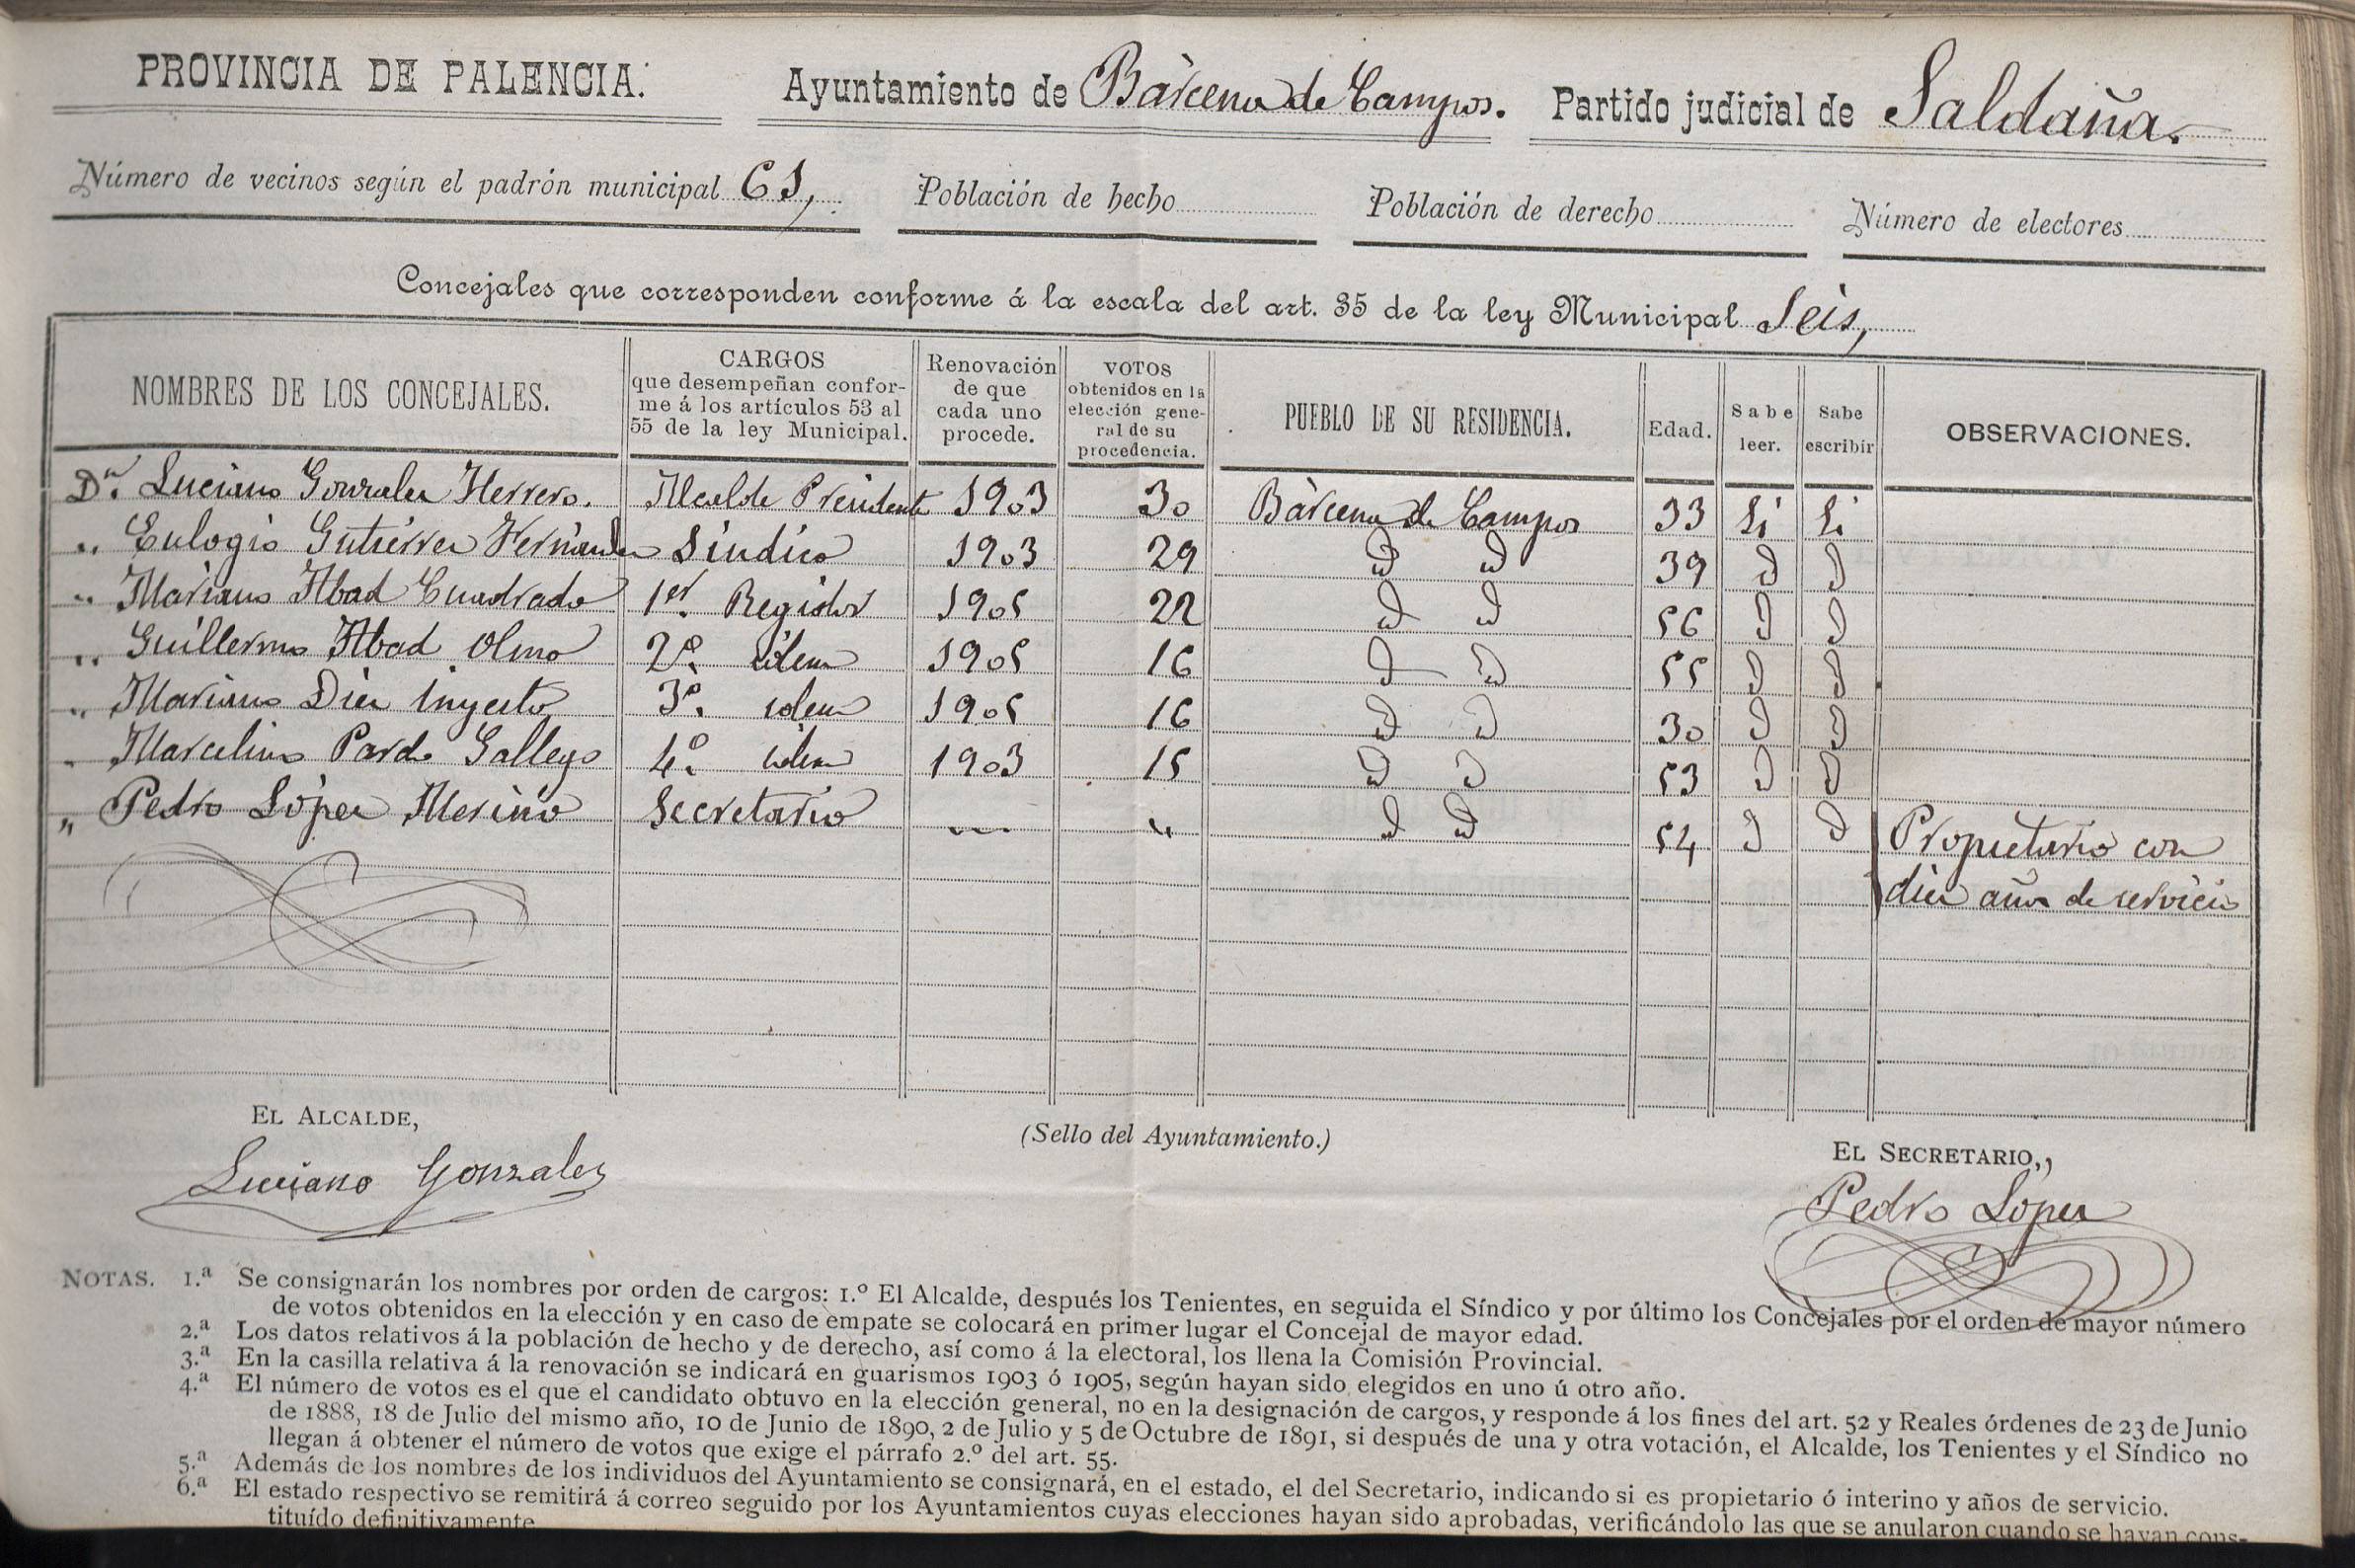 PROVINCIA DE PALENCIA. Ayuntamiento de Bárcena de Campos. Partido judicial de Saldaña.
Número de vecinos según el padrón municipal 61, Población de hecho Población de derecho Número de electores
Concejales que corresponden conforme á la escala del art. 35 de la ley Municipal Seis,
NOMBRES DE LOS CONCEJALES. CARGOS que desempeñan confor- me á los artículos 53 al 55 de la ley Municipal. Renovación de que cada uno procede. VOTOS obtenidos en la elección gene- ral de su procedencia. PUEBLO DE SU RESIDENCIA. Edad. Sabe leer. Sabe escribir OBSERVACIONES.
Dn. Luciano Gonzalez Herrero. Alcalde Presidente 1903 30 Bárcena de Campos 33 Si Si
" Eulogio Gutiérrez Fernandez Síndico 1903 29 Id Id 39 Id Id
" Mariano Abad Cuadrado 1er. Regidor 1905 22 Id Id 56 Id Id
" Guillermo Abad Olmo 2º. idem 1905 16 Id Id 55 Id Id
" Mariano Diez Inyesto 3º. idem 1905 16 Id Id 30 Id Id
" Marcelino Pardo Gallego 4º. idem 1903 15 Id Id 53 Id Id
" Pedro López Merino Secretario " " Id Id 54 Id Id Propietario con
diez años de servicio
EL ALCALDE, (Sello del Ayuntamiento.) EL SECRETARIO,
Luciano Gonzalez Pedro Lopez
NOTAS. 1.ª Se consignarán los nombres por orden de cargos: 1.º El Alcalde, después los Tenientes, en seguida el Síndico y por último los Concejales por el orden de mayor número
de votos obtenidos en la elección y en caso de empate se colocará en primer lugar el Concejal de mayor edad.
2.ª Los datos relativos á la población de hecho y de derecho, así como á la electoral, los llena la Comisión Provincial.
3.ª En la casilla relativa á la renovación se indicará en guarismos 1903 ó 1905, según hayan sido elegidos en uno ú otro año.
4.ª El número de votos es el que el candidato obtuvo en la elección general, no en la designación de cargos, y responde á los fines del art. 52 y Reales órdenes de 23 de Junio
de 1888, 18 de Julio del mismo año, 10 de Junio de 1890, 2 de Julio y 5 de Octubre de 1891, si después de una y otra votación, el Alcalde, los Tenientes y el Síndico no
llegan á obtener el número de votos que exige el párrafo 2.º del art. 55.
5.ª Además de los nombres de los individuos del Ayuntamiento se consignará, en el estado, el del Secretario, indicando si es propietario ó interino y años de servicio.
6.ª El estado respectivo se remitirá á correo seguido por los Ayuntamientos cuyas elecciones hayan sido aprobadas, verificándolo las que se anularon cuando se hayan cons-
tituído definitivamente